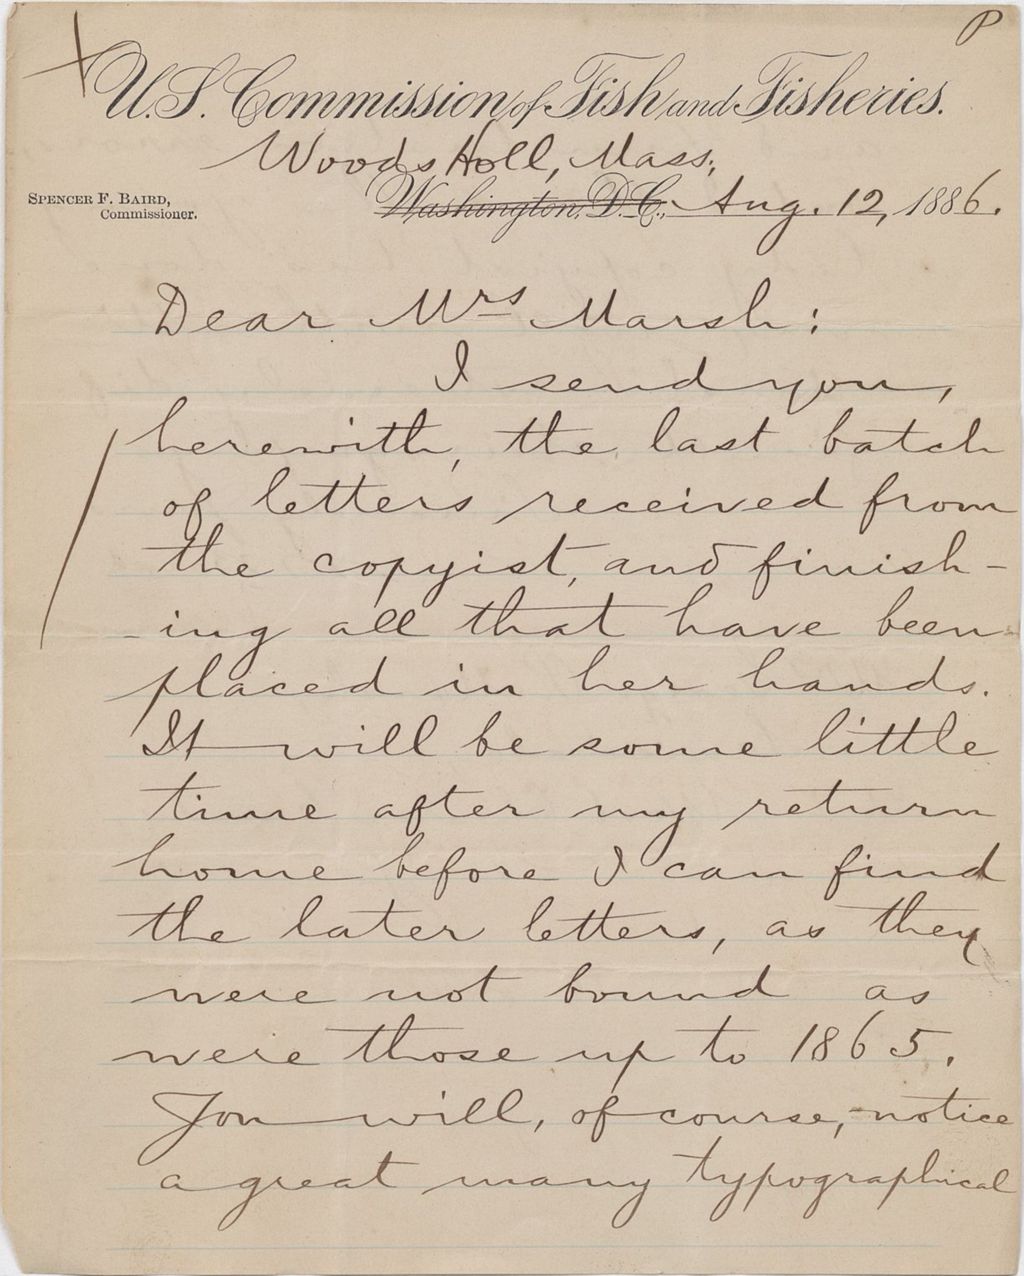 P
U.S. Commission of Fish and Fisheries.
Woods Holl, Mass.,
SPENCER F. BAIRD,
Commissioner.
Washington, D.C., Aug. 12, 1886.
Dear Mrs Marsh:
I send you,
herewith, the last batch
of letters received from
the copyist, and finish-
-ing all that have been
placed in her hands.
It will be some little
time after my return
home before I can find
the later letters, as they
were not bound as
were those up to 1865.
You will, of course, notice
a great many typographical